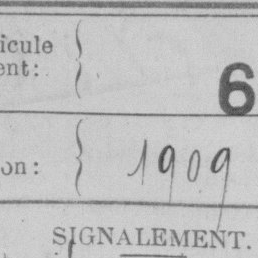 icule
ent: 6
on: 1909
SIGNALEMENT.